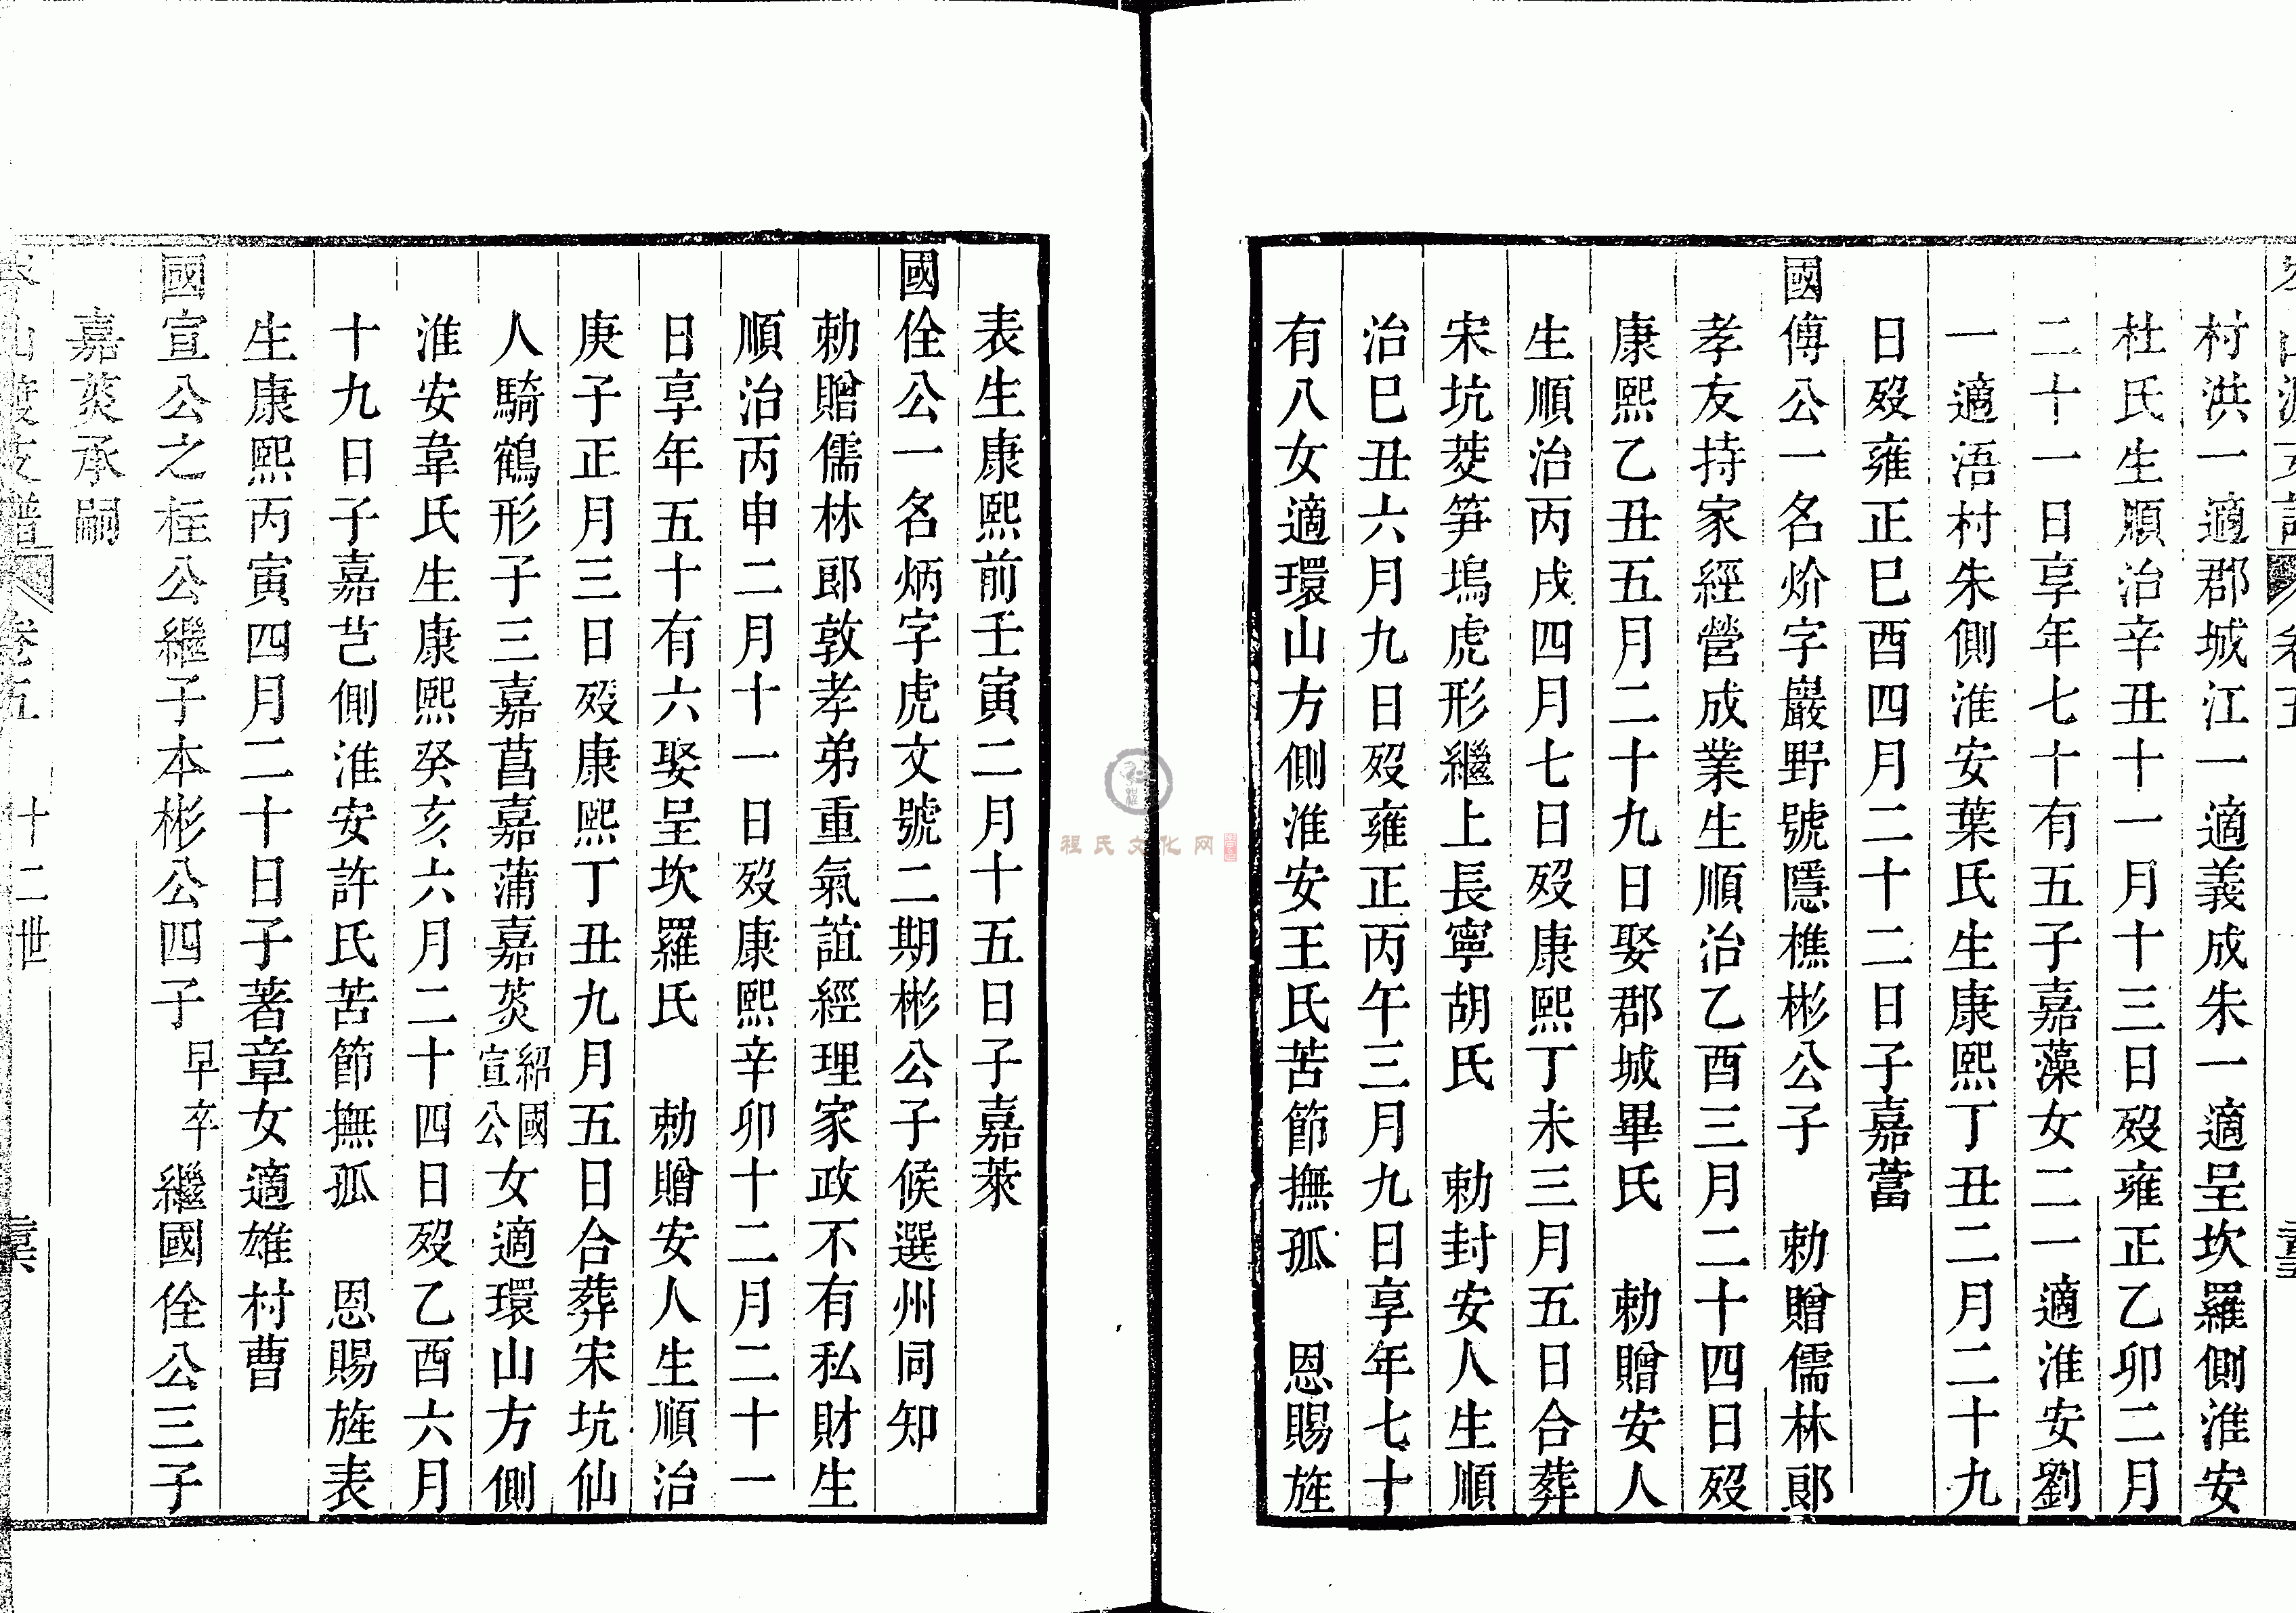 村洪一適郡城江一適義成朱一適呈坎羅側淮安
杜氏生順治辛丑十一月十三日歿雍正乙卯二月
二十一日享年七十有五子嘉藻女二一適淮安劉
一適浯村朱側淮安葉氏生康熙丁丑二月二十九
日歿雍正巳酉四月二十二日子嘉蕾
國傅公一名炌字巖野號隱樵彬公子 勅贈儒林郎
孝友持家經營成業生順治乙酉三月二十四日歿
康熙乙丑五月二十九日娶郡城畢氏 勅贈安人
生順治丙戌四月七日歿康熙丁未三月五日合葬
宋坑茭笋塢虎形繼上長寧胡氏 勅封安人生順
治巳丑六月九日歿雍正丙午三月九日享年七十
有八女適環山方側淮安王氏苦節撫孤 恩賜旌
表生康熙前壬寅二月十五日子嘉萊
國佺公一名炳字虎文號二期彬公子候選州同知
勅贈儒林郎敦孝弟重氣誼經理家政不有私財生
順治丙申二月十一日歿康熙辛卯十二月二十一
日享年五十有六娶呈坎羅氏 勅贈安人生順治
庚子正月三日歿康熙丁丑九月五日合葬宋坑仙
人騎鶴形子三嘉菖嘉蒲嘉菼紹國宣公女適環山方側
淮安韋氏生康熙癸亥六月二十四日歿乙酉六月
十九日子嘉芑側淮安許氏苦節撫孤 恩賜旌表
生康熙丙寅四月二十日子著章女適雄村曹
國宣公之桂公繼子本彬公四子早卒繼國佺公三子
嘉菼承嗣
山渡支譜 卷五 十二世
程氏文化网